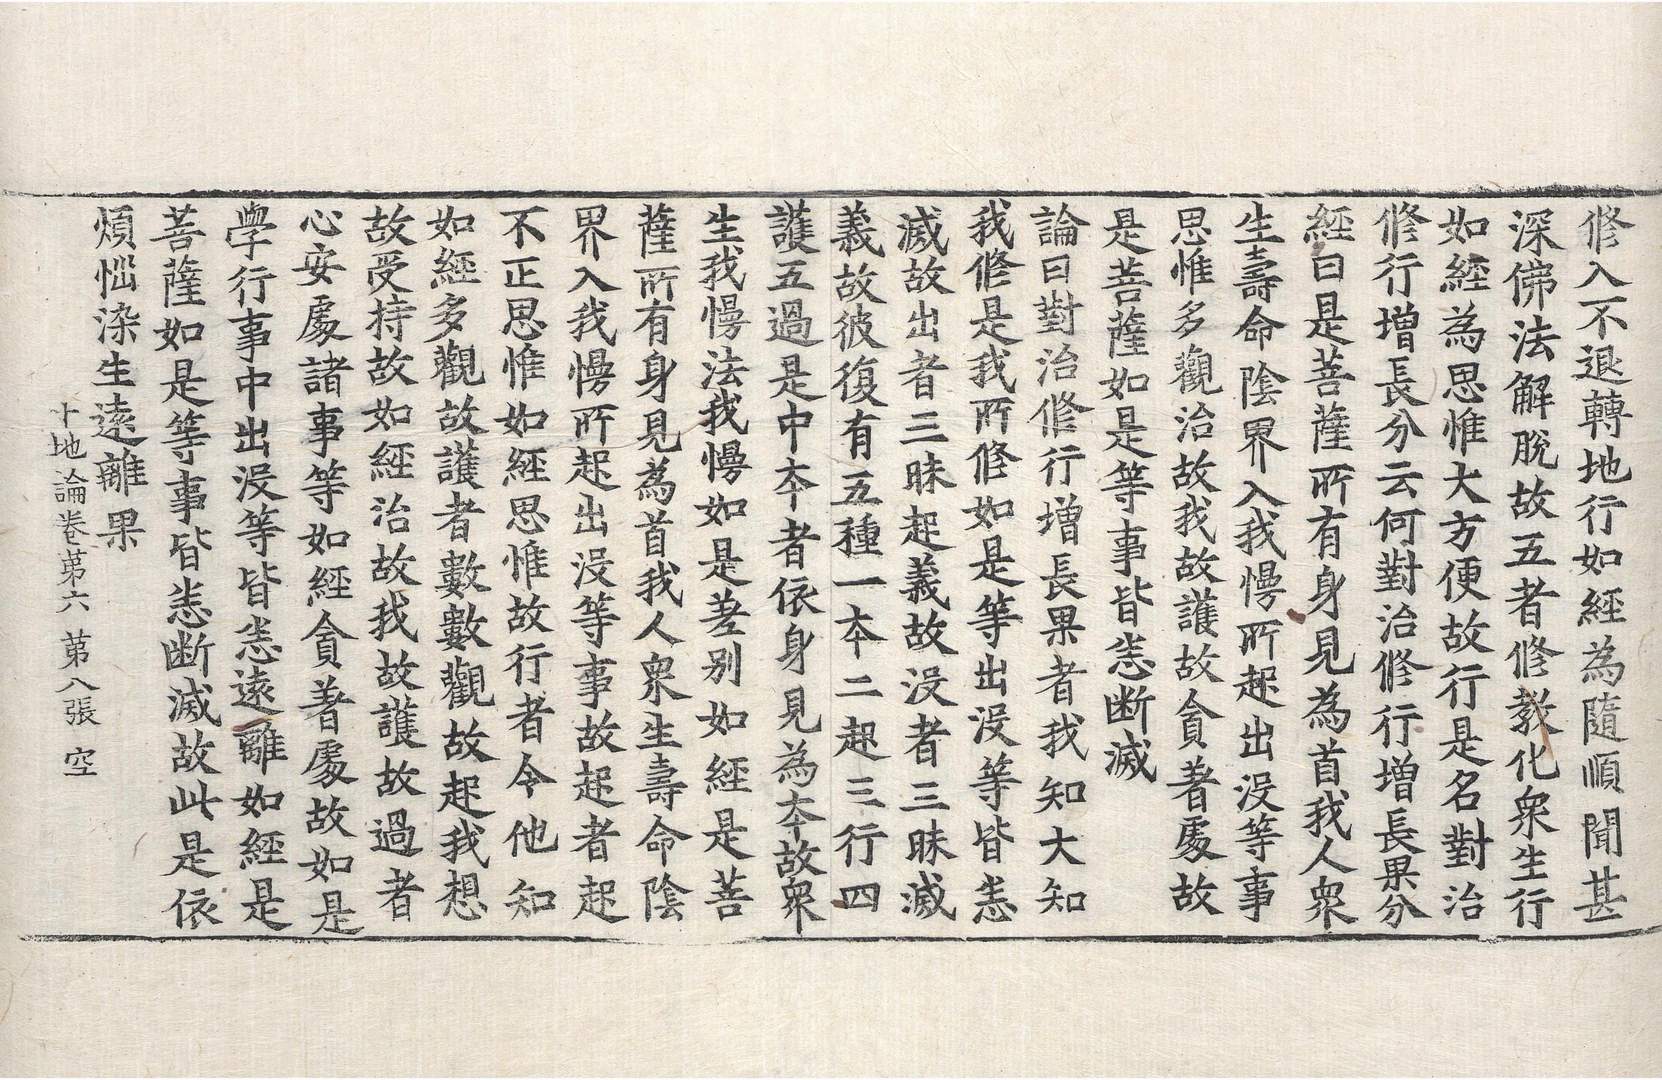 修入不退轉地行如經為隨順聞甚
深佛法解脫故五者修教化衆生行
如經為思惟大方便故行是名對治
修行增長分云何對治修行增長果分
經曰是菩薩所有身見為首我人衆
生壽命陰界入我慢所起出没等事
思惟多觀治故我故護故貪著處故
是菩薩如是等事皆悉斷滅
論曰對治修行增長果者我知大知
我修是我所修如是等出没等皆悉
滅故出者三昧起義故没者三昧滅
義故彼復有五種一本二起三行四
護五過是中本者依身見為本故衆
生我慢法我慢如是差别如經是菩
薩所有身見為首我人衆生壽命陰
界入我慢所起出没等事故起者起
不正思惟如經思惟故行者令他知
如經多觀故護者數數觀故起我想
故受持故如經治故我故護故過者
心安處諸事等如經貪著處故如是
學行事中出没等皆悉遠離如經是
菩薩如是等事皆悉斷滅故此是依
煩惱染生遠離果
十地論卷第六　第八張　空